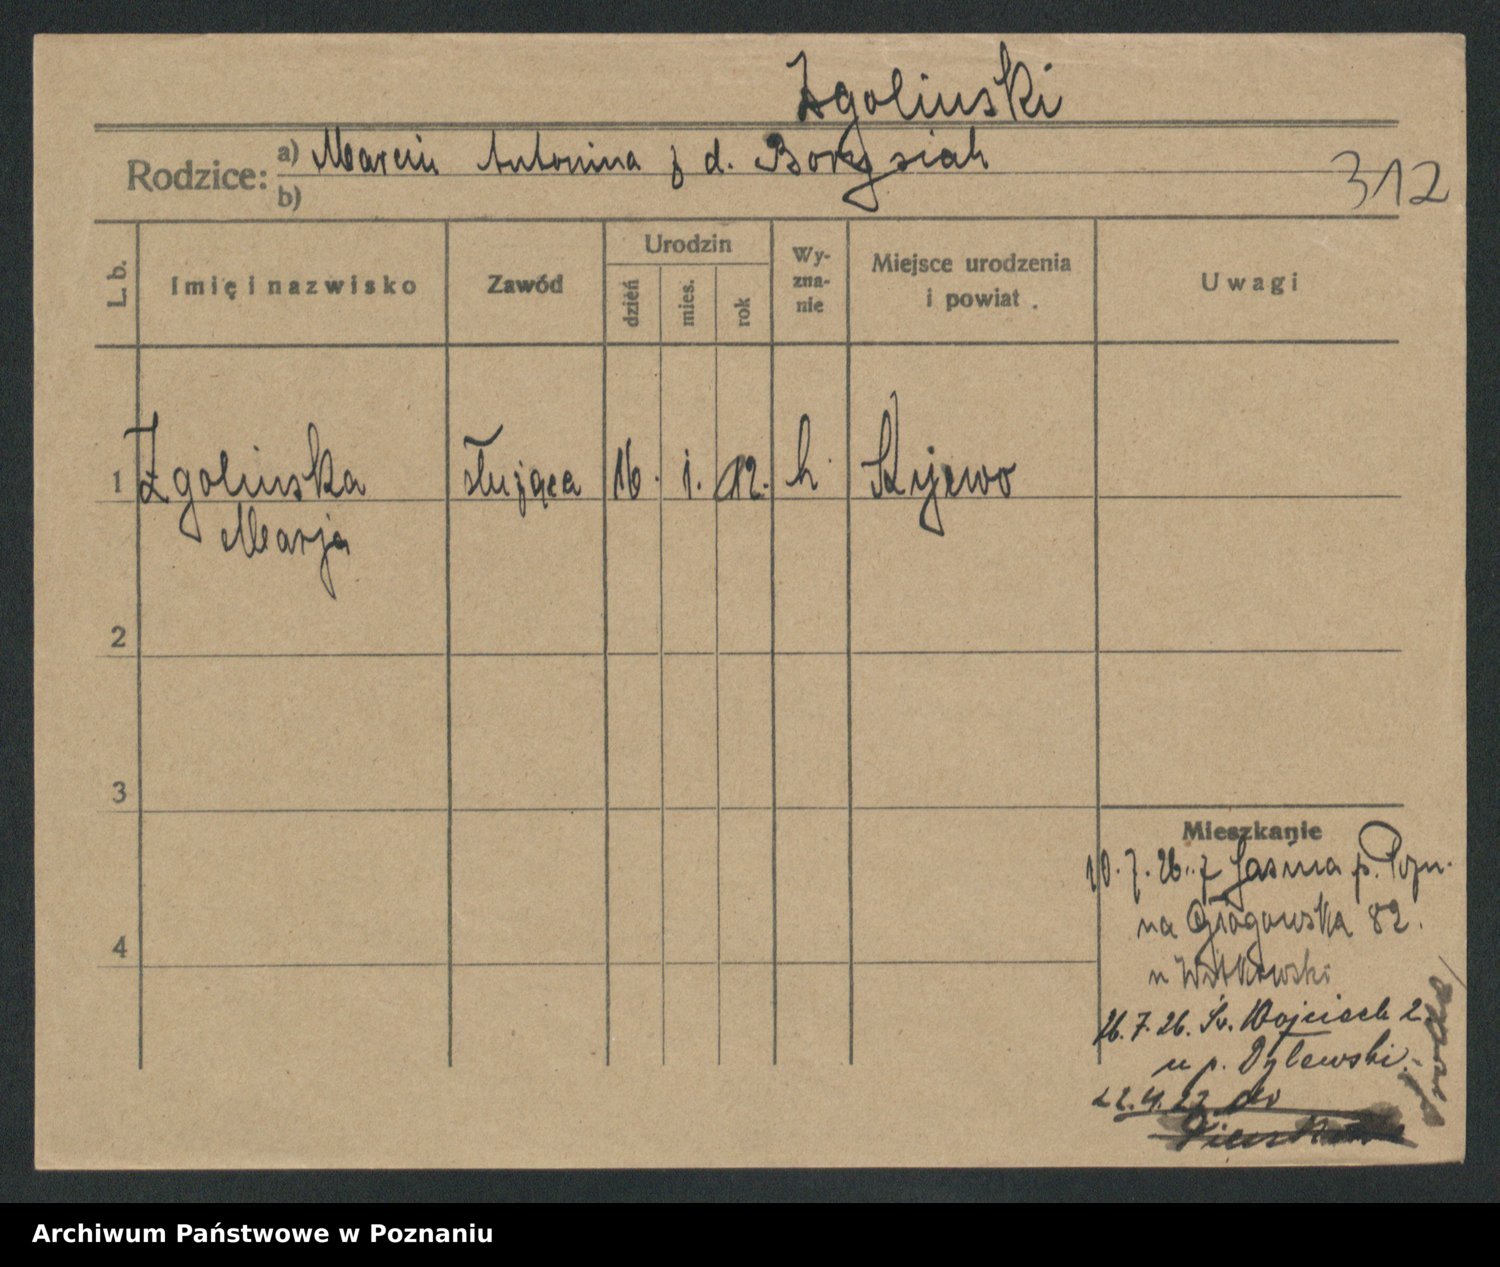 Zgolinski
Rodzice: a) Marcin Antonina z d. Borysiak
b)
312
L. b. Imię i nazwisko Zawód Urodzin dzień mies. rok Wy-zna-nie Miejsce urodzenia i powiat Uwagi
1 Zgolinska służąca 16. 1. 12. k. Kijewo
Marja
2
3
4
Mieszkanie
10.7.26. z Jasina p. Pozn.
na Głogowska 82.
u Witkowski
26.7.26. Św. Wojciech 2.
u p. Dylewski.
22.4.27 do